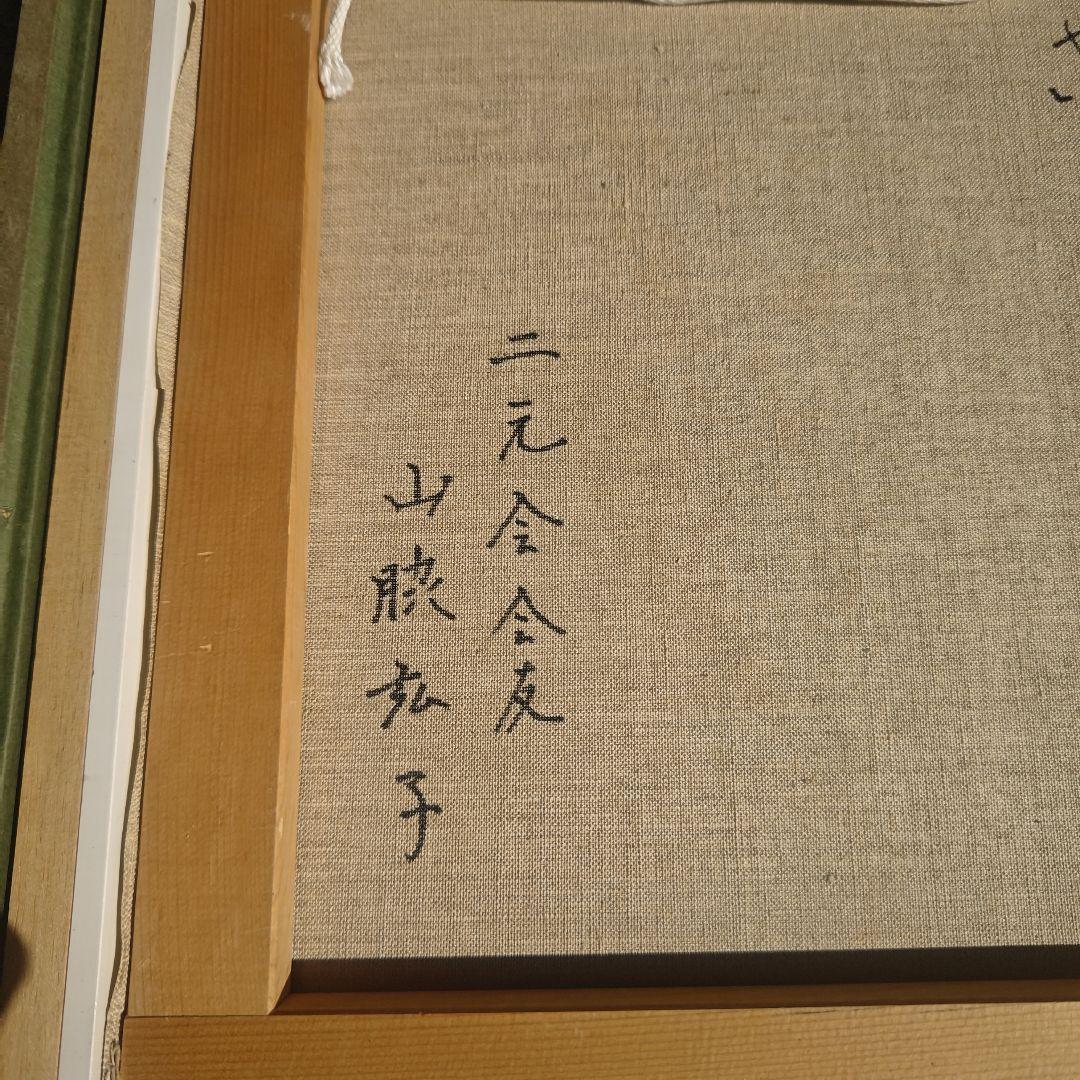 二元会会友
山脇弘子